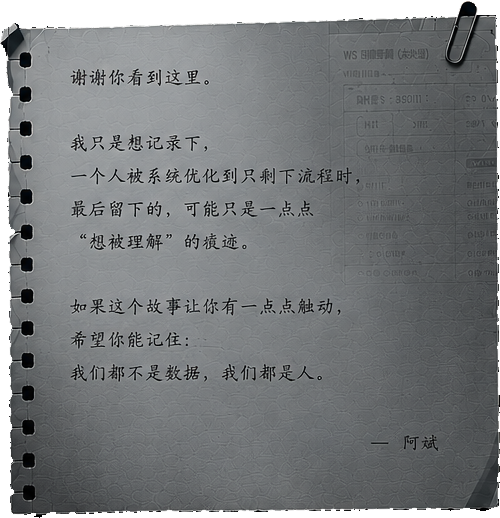 谢谢你看到这里。
我只是想记录下，
一个人被系统优化到只剩下流程时，
最后留下的，可能只是一点点
“想被理解”的痕迹。
如果这个故事让你有一点点触动，
希望你能记住：
我们都不是数据，我们都是人。
— 阿斌